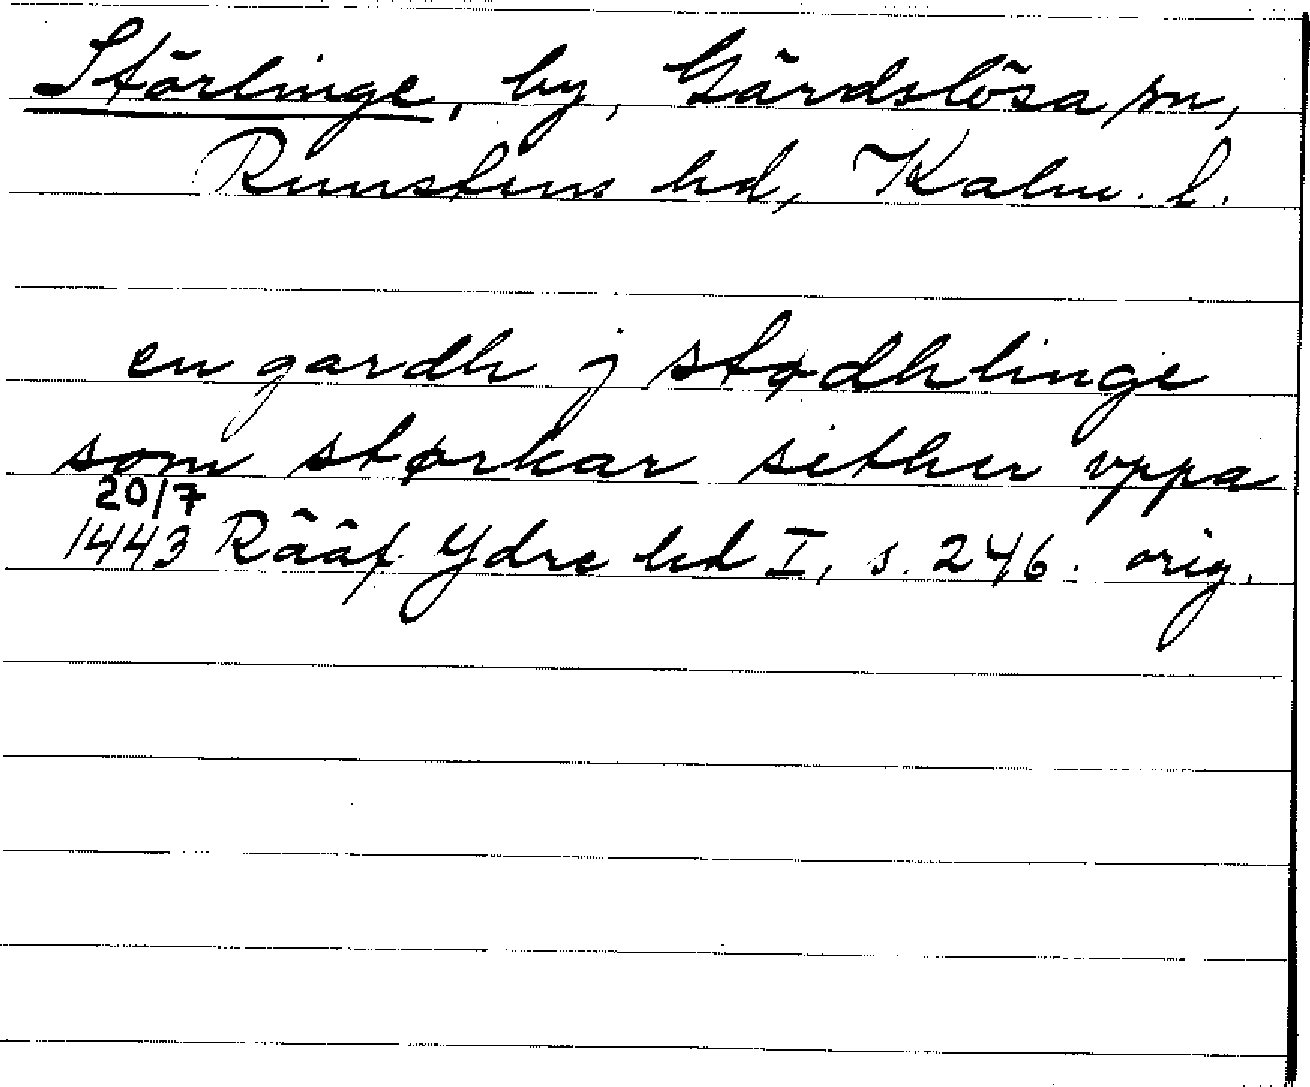 Störlinge, by, Gärdslösa sn,
Runstens hd, Kalm. l.
en gardh j stødhlinge
som størkar sither vppa
20/7
1443 Rääf Ydre hd I, s. 246. orig.